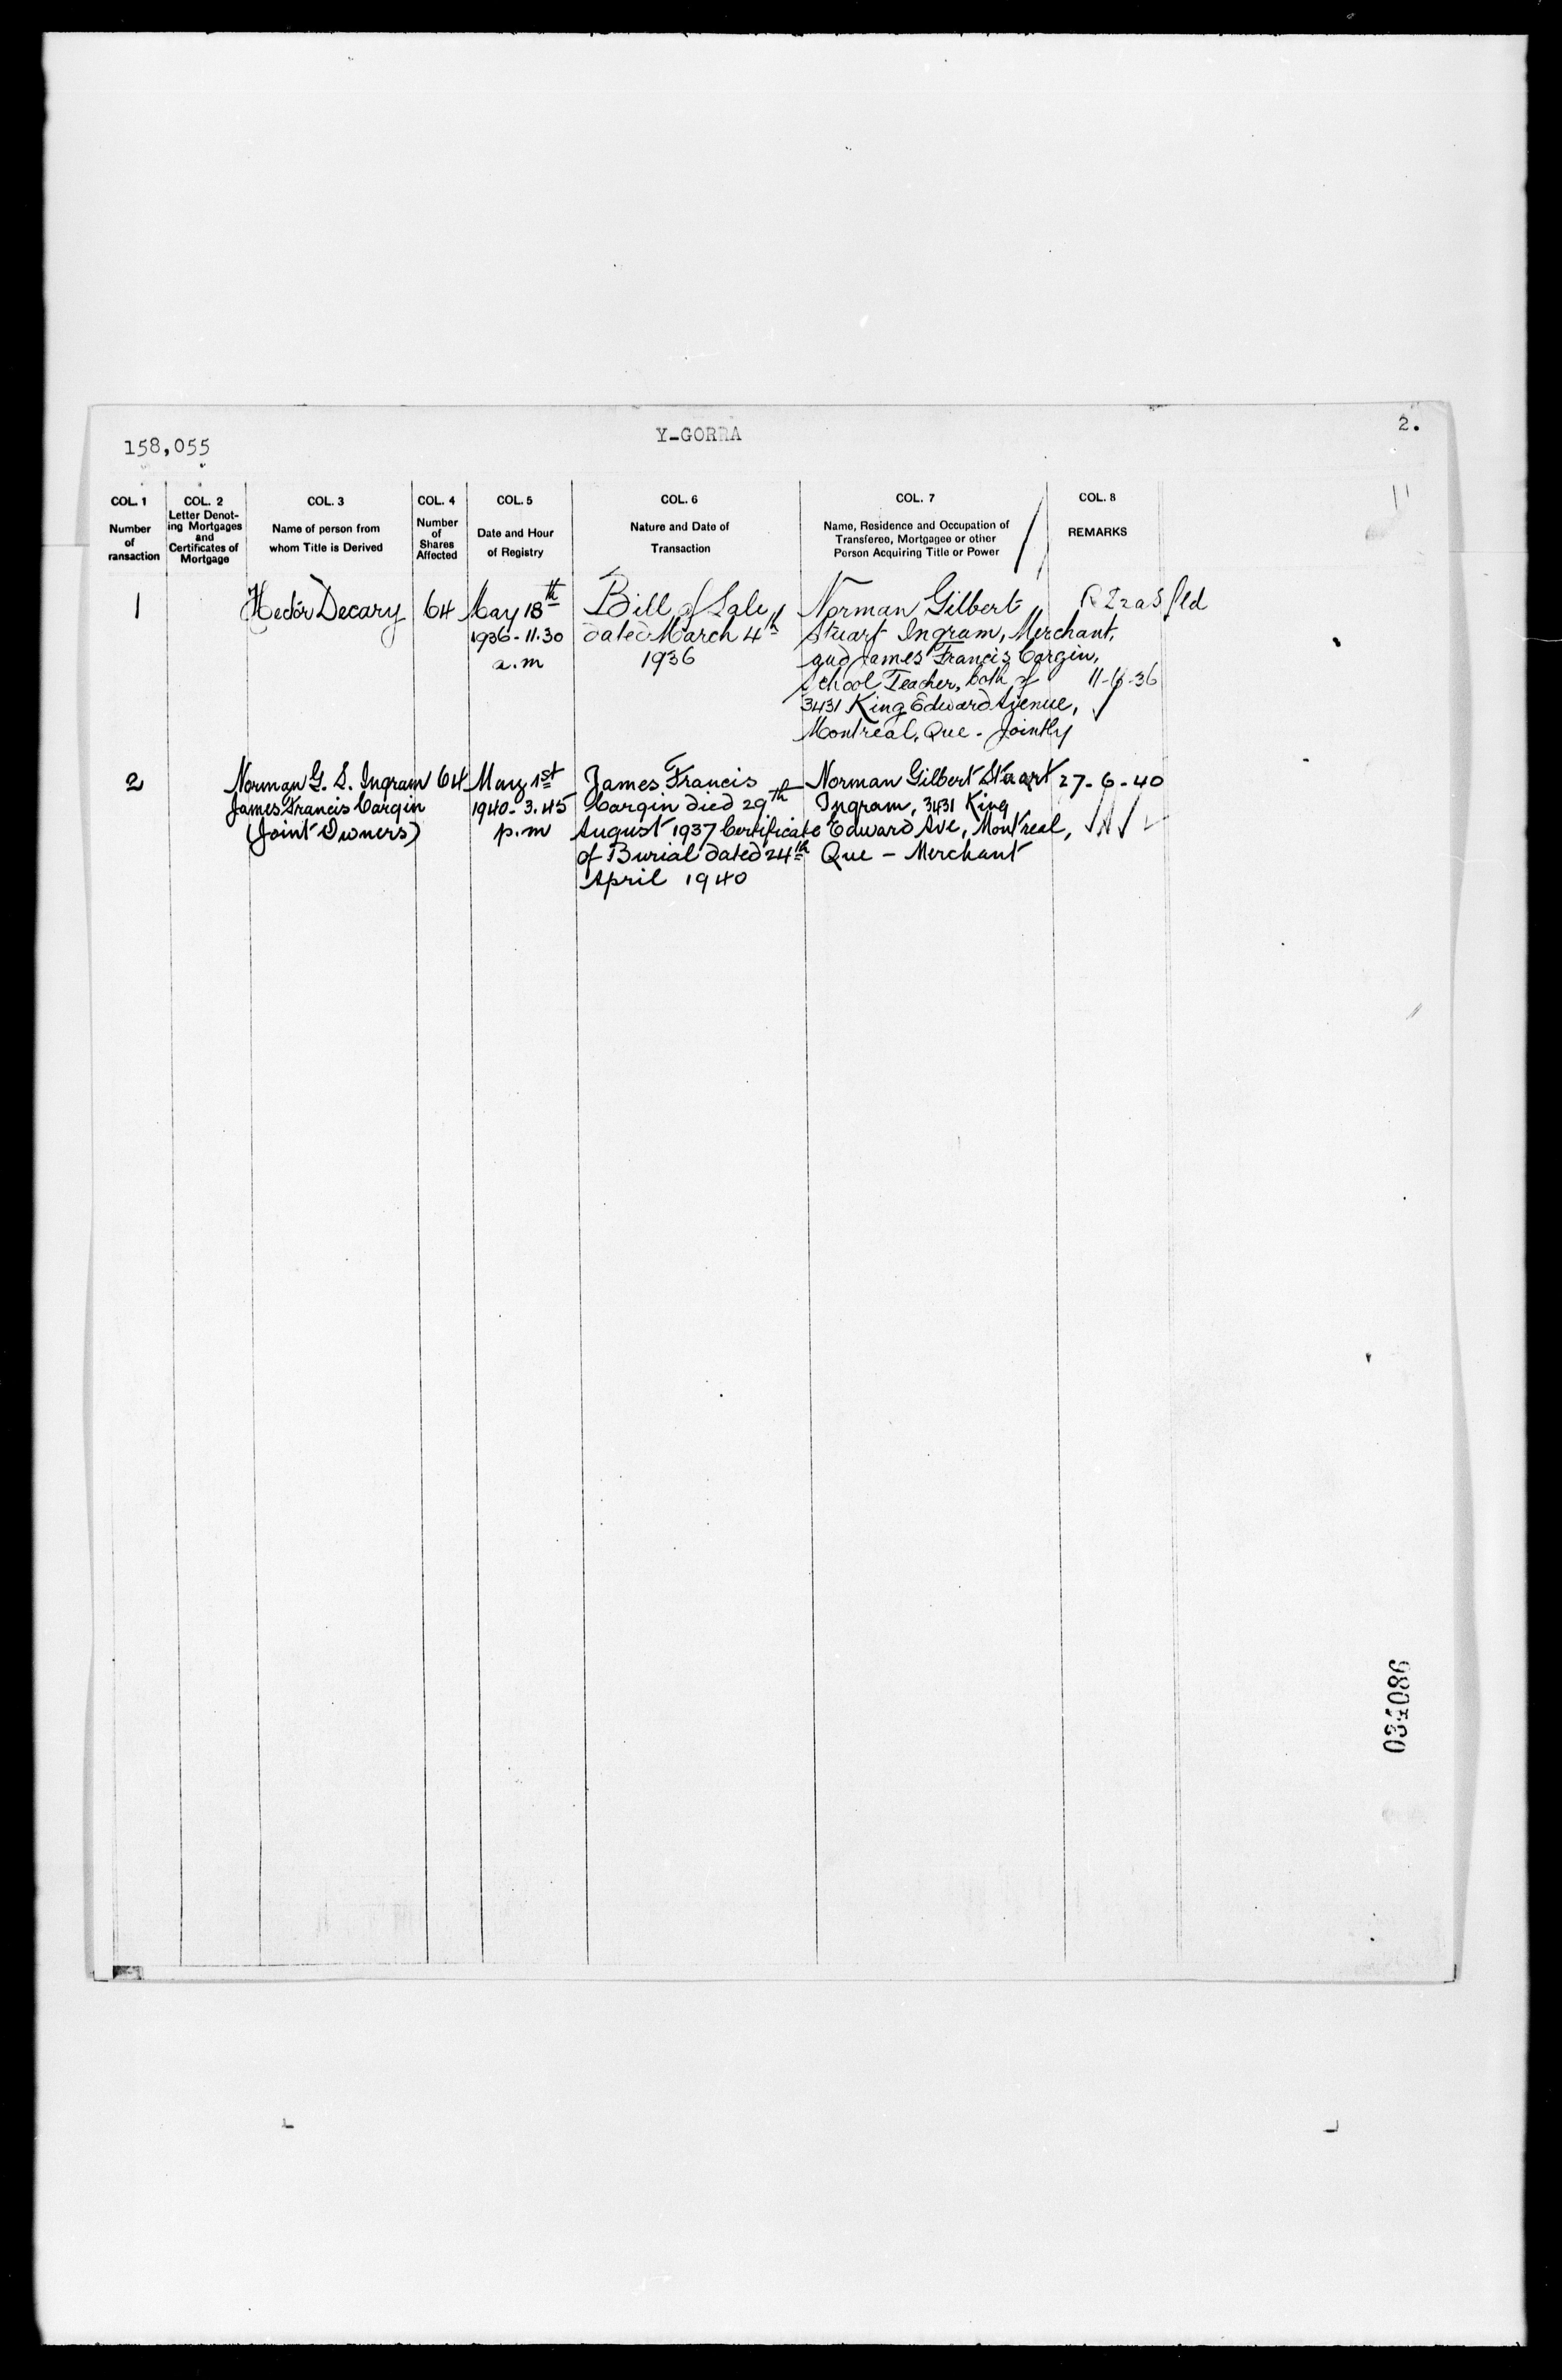 158,055
Y-GORRA
2.
COL. 1
Number
of
ransaction
COL. 2
Letter Denot-
ing Mortgages
and
Certificates of
Mortgage
COL. 3
Name of person from
whom Title is Derived
COL. 4
Number
of
Shares
Affected
COL. 5
Date and Hour
of Registry
COL. 6
Nature and Date of
Transaction
COL. 7
Name, Residence and Occupation of
Transferee, Mortgagee or other
Person Acquiring Title or Power
COL. 8
REMARKS
1
Hector Decary
64
May 18th
1936-11.30
a.m
Bill of Sale
dated March 4th
1936
Norman Gilbert
Stuart Ingram, Merchant,
and James Francis Cargin,
School Teacher, both of
3431 King Edward Avenue,
Montreal, Que. Jointly
11-6-36
2
Norman G. S. Ingram
James Francis Cargin
(Joint Owners)
64
May 1st
1940-3.45
p.m
James Francis
Cargin died 29th
August 1937 Certificate
of Burial dated 24th
April 1940
Norman Gilbert Stuart
Ingram, 3431 King
Edward Ave, Montreal,
Que - Merchant
27-6-40
034086